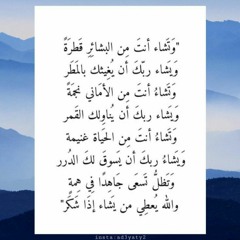 "وَتَشاء أنتَ مِن البشائرِ قَطرَةً
وَيَشاء ربّكَ أن يُغِيثك بالمَطَر
وَتَشاءُ أنتَ مِن الأماني نجمَةً
وَيَشاء ربك أن يُناوِلك القَمر
وَتَشاءُ أنتَ مِن الحَياة غنيمة
وَيَشَاءُ ربك أن يَسوقَ لكَ الدُرر
وَتَظلُّ تَسعَى جَاهِدًا فِي هِمةٍ
والله يُعطِي من يَشاء إذَا شَكَرْ"
insta:ad3yaty2